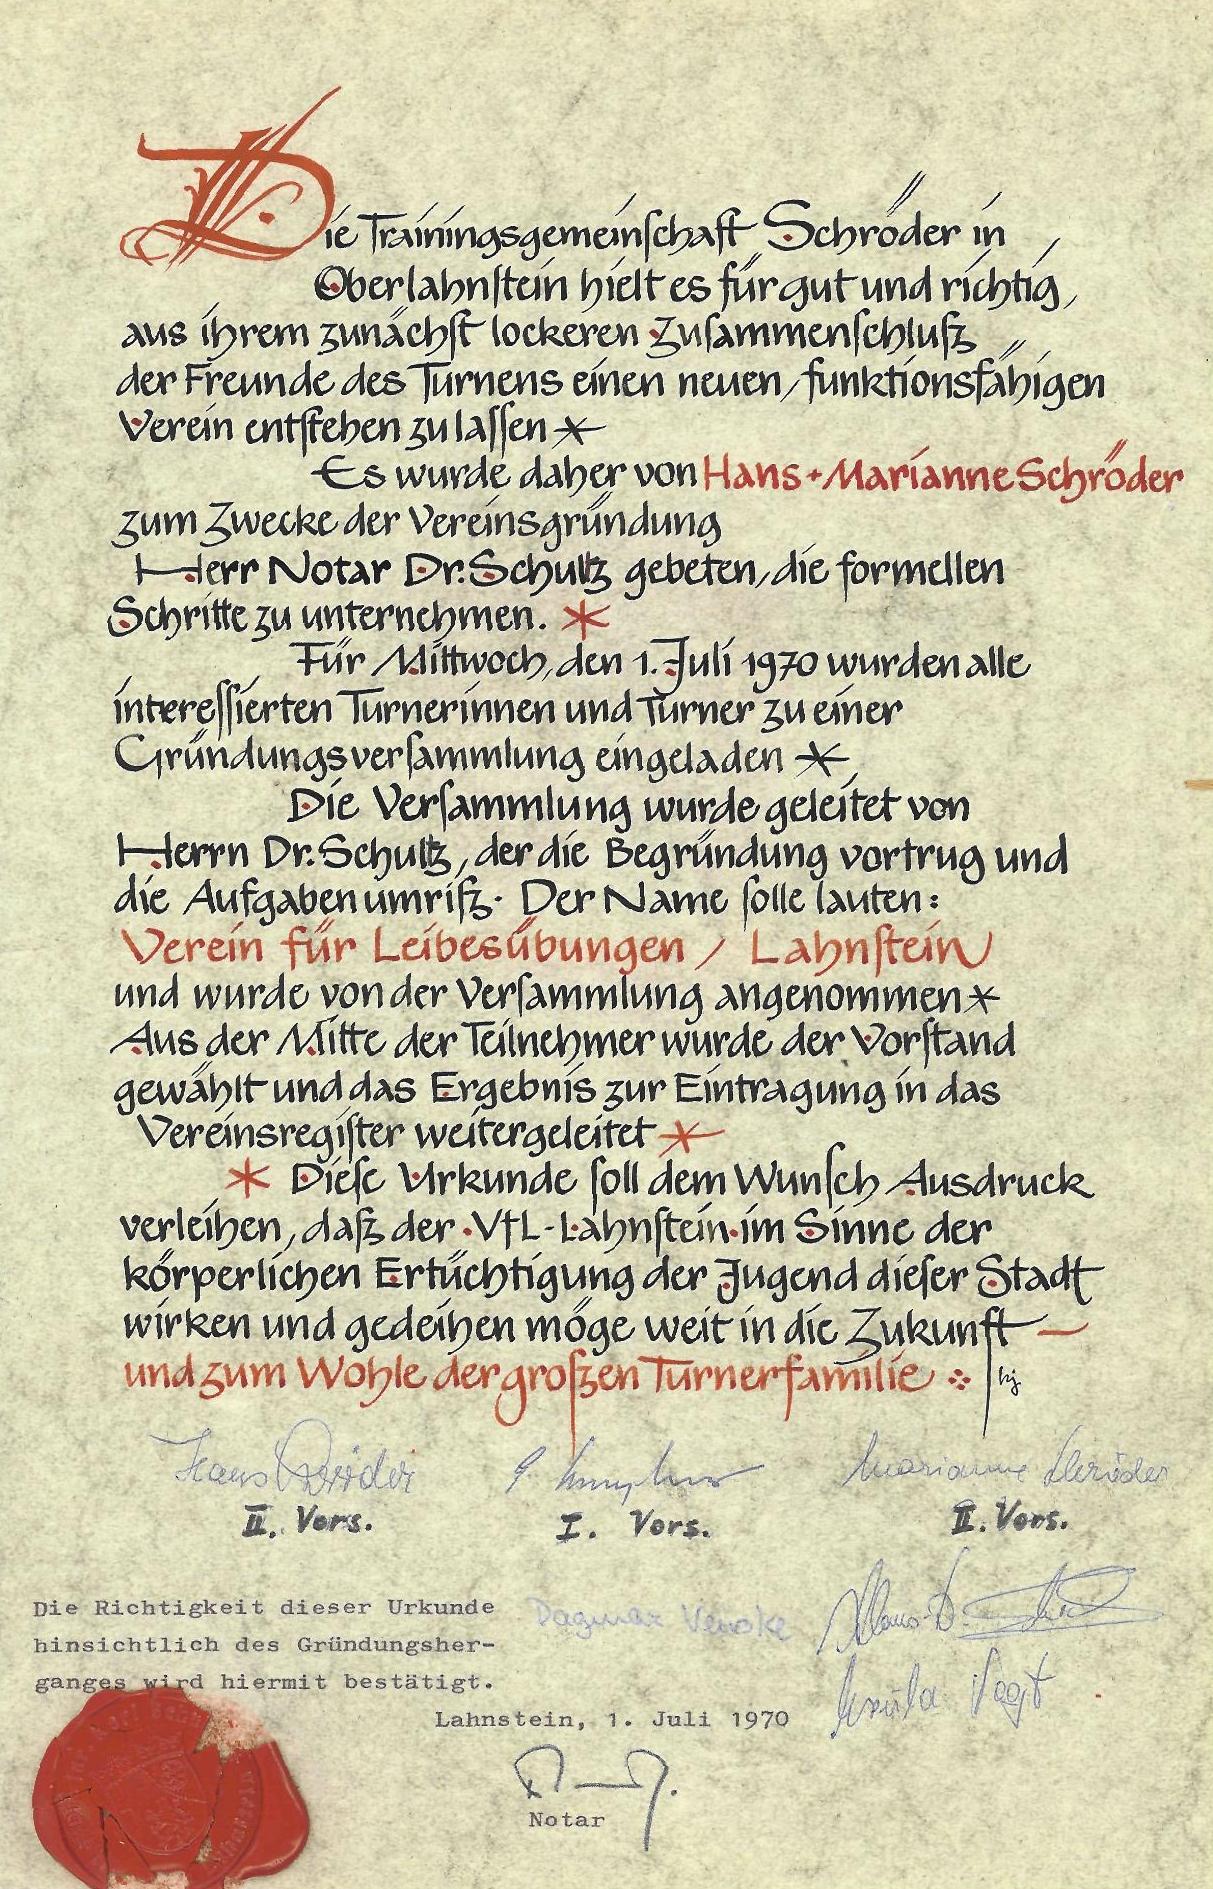 Die Trainingsgemeinschaft Schröder in
Oberlahnstein hielt es für gut und richtig,
aus ihrem zunächst lockeren Zusammenschluß
der Freunde des Turnens einen neuen, funktionsfähigen
Verein entstehen zu lassen *
Es wurde daher von Hans + Marianne Schröder
zum Zwecke der Vereinsgründung
Herr Notar Dr. Schultz gebeten, die formellen
Schritte zu unternehmen. *
Für Mittwoch, den 1. Juli 1970 wurden alle
interessierten Turnerinnen und Turner zu einer
Gründungsversammlung eingeladen *
Die Versammlung wurde geleitet von
Herrn Dr. Schultz, der die Begründung vortrug und
die Aufgaben umriß. Der Name solle lauten:
Verein für Leibesübungen / Lahnstein
und wurde von der Versammlung angenommen *
Aus der Mitte der Teilnehmer wurde der Vorstand
gewählt und das Ergebnis zur Eintragung in das
Vereinsregister weitergeleitet *
* Diese Urkunde soll dem Wunsch Ausdruck
verleihen, daß der · VfL - Lahnstein · im Sinne der
körperlichen Ertüchtigung der Jugend dieser Stadt
wirken und gedeihen möge weit in die Zukunft —
und zum Wohle der großen Turnerfamilie
Hans Schröder Marianne Schröder
II. Vors. I. Vors. II. Vors.
Die Richtigkeit dieser Urkunde
hinsichtlich des Gründungsher-
ganges wird hiermit bestätigt.
Dagmar Klaus-D.
Ursula Vogt
Lahnstein, 1. Juli 1970
Notar